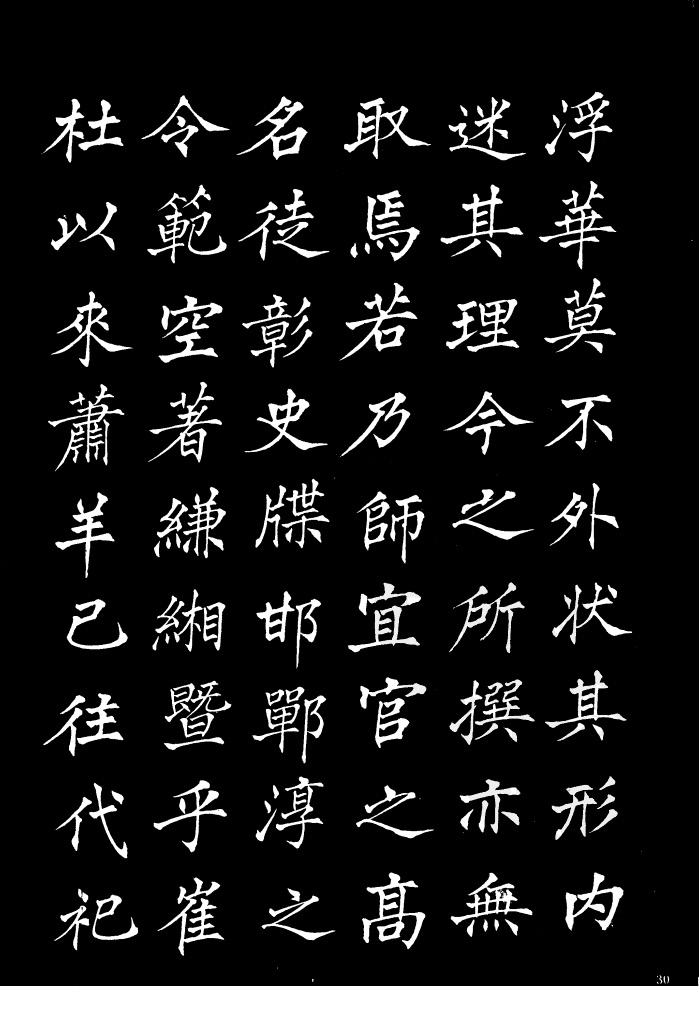 浮華莫不外狀其形内
迷其理今之所撰亦無
取焉若乃師宜官之髙
名徒彰史牒邯鄲淳之
令範空著縑緗暨乎崔
杜以來蕭羊已往代祀
30